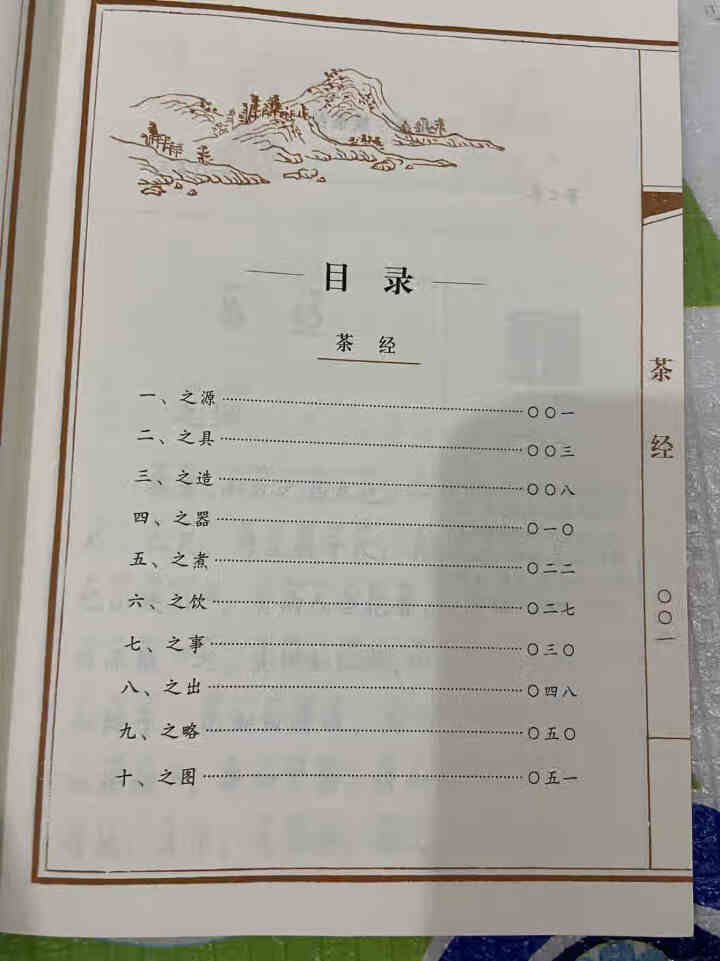 目 录
茶 经
一、之源……〇〇一
二、之具……〇〇三
三、之造……〇〇八
四、之器……〇一〇
五、之煮……〇二二
六、之饮……〇二七
七、之事……〇三〇
八、之出……〇四八
九、之略……〇五〇
十、之图……〇五一
茶经
〇〇一